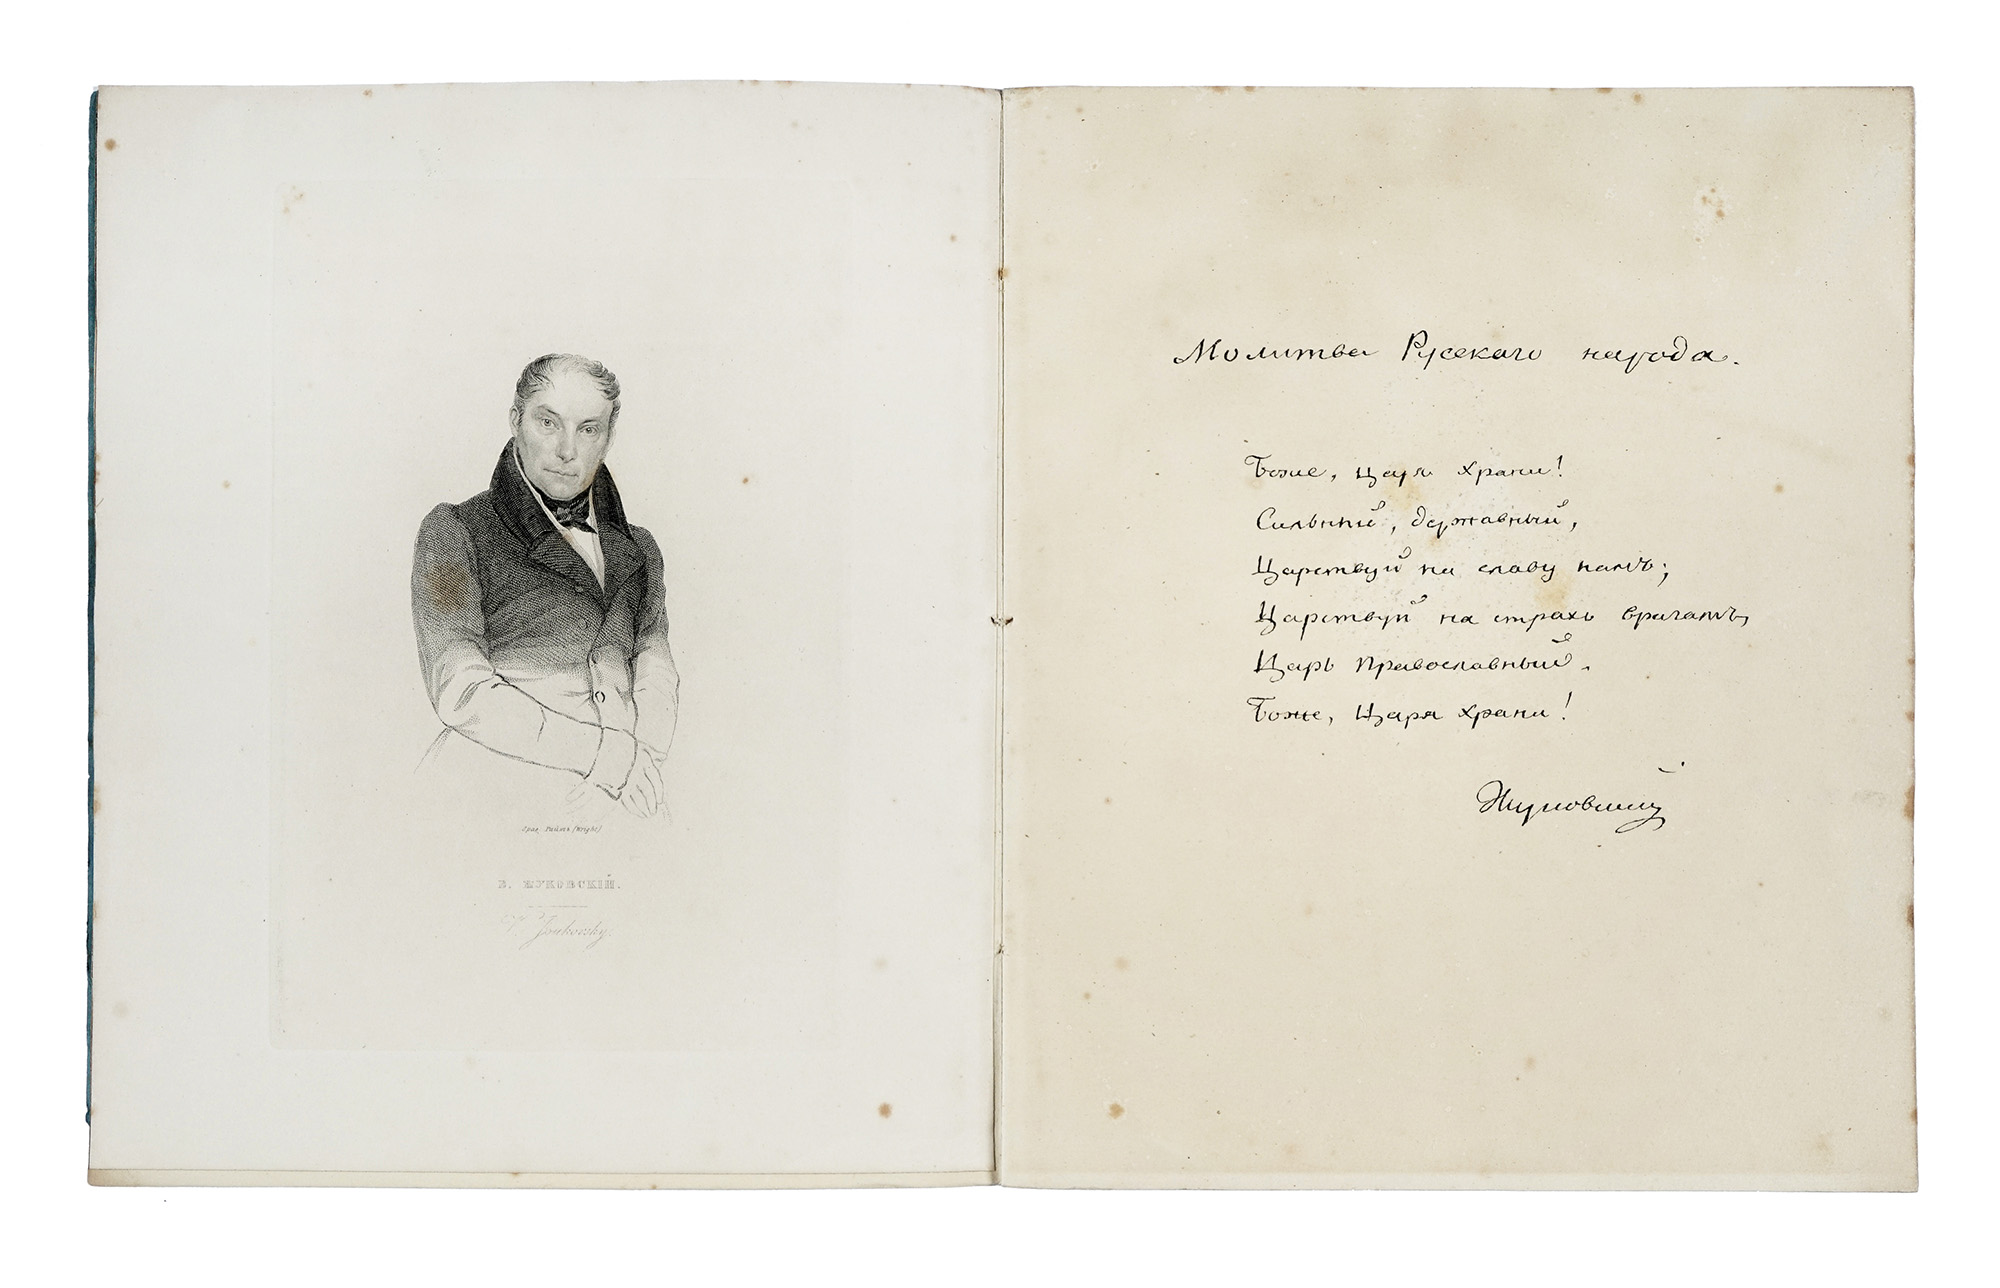 Грав. Райтъ (Wright)
В. ЖУКОВСКІЙ.
W. Joukovsky.
Молитва Русскаго народа.
Боже, Царя храни!
Сильный, державный,
Царствуй на славу намъ;
Царствуй на страхъ врагамъ,
Царь православный.
Боже, Царя храни!
Жуковскій